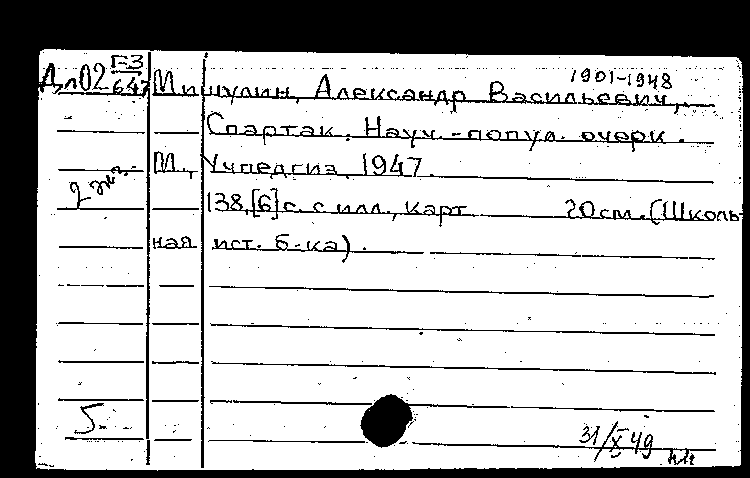 1901-1948
Дл02 Г-3/647 Мишулин, Александр Васильевич,
Спартак. Науч.-попул. очерк.
М., Учпедгиз, 1947.
2 экз.
138,[6] с. с илл., карт 20 см. (Школь-
ная ист. б-ка).
5-
31/X 49